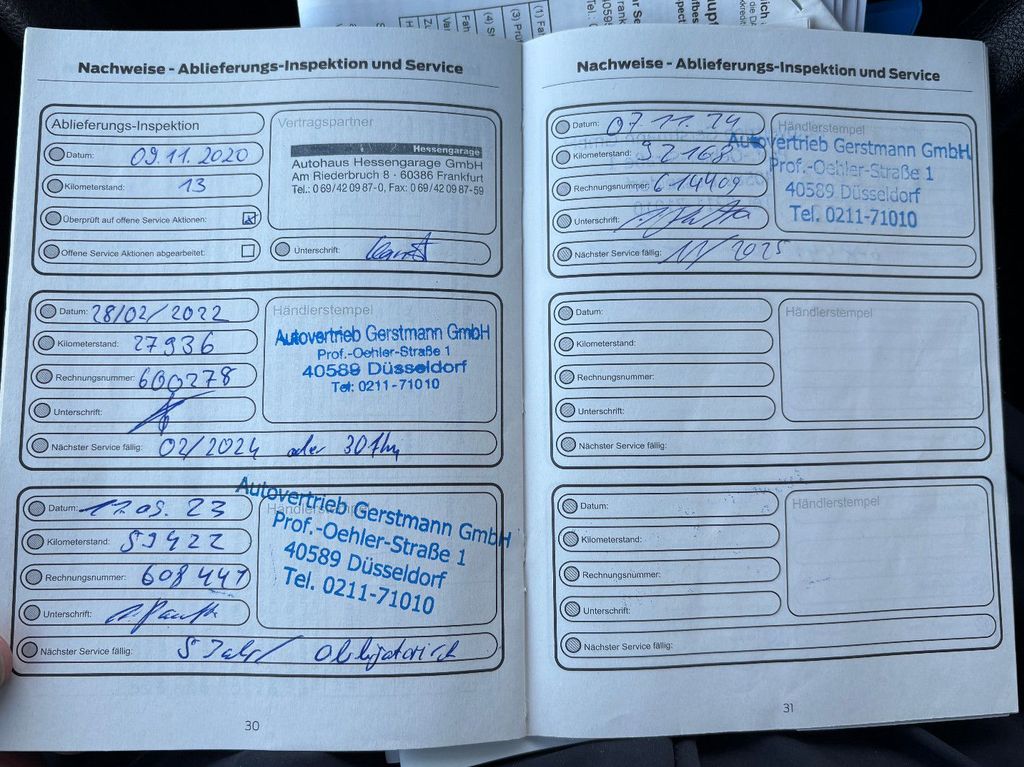 Nachweise - Ablieferungs-Inspektion und Service
Ablieferungs-Inspektion
Datum: 09.11.2020
Kilometerstand: 13
Überprüft auf offene Service Aktionen:
Offene Service Aktionen abgearbeitet:
Vertragspartner
Hessengarage
Autohaus Hessengarage GmbH
Am Riederbruch 8 · 60386 Frankfurt
Tel.: 0 69/42 09 87-0, Fax: 0 69/42 09 87-59
Unterschrift:
Datum: 28/02/2022
Kilometerstand: 27936
Rechnungsnummer: 600278
Unterschrift:
Händlerstempel
Autovertrieb Gerstmann GmbH
Prof.-Oehler-Straße 1
40589 Düsseldorf
Tel: 0211-71010
Nächster Service fällig: 02/2024 oder 30
Datum: 23
Kilometerstand: 59422
Rechnungsnummer: 608447
Unterschrift:
Händlerstempel
Autovertrieb Gerstmann GmbH
Prof.-Oehler-Straße 1
40589 Düsseldorf
Tel. 0211-71010
Nächster Service fällig: 5 Obligatorisch
30
Nachweise - Ablieferungs-Inspektion und Service
Datum: 07.11.24
Kilometerstand: 92168
Rechnungsnummer: 614409
Unterschrift:
Händlerstempel
Autovertrieb Gerstmann GmbH
Prof.-Oehler-Straße 1
40589 Düsseldorf
Tel. 0211-71010
Nächster Service fällig: 11/2025
Datum:
Kilometerstand:
Rechnungsnummer:
Unterschrift:
Händlerstempel
Nächster Service fällig:
Datum:
Kilometerstand:
Rechnungsnummer:
Unterschrift:
Händlerstempel
Nächster Service fällig:
31